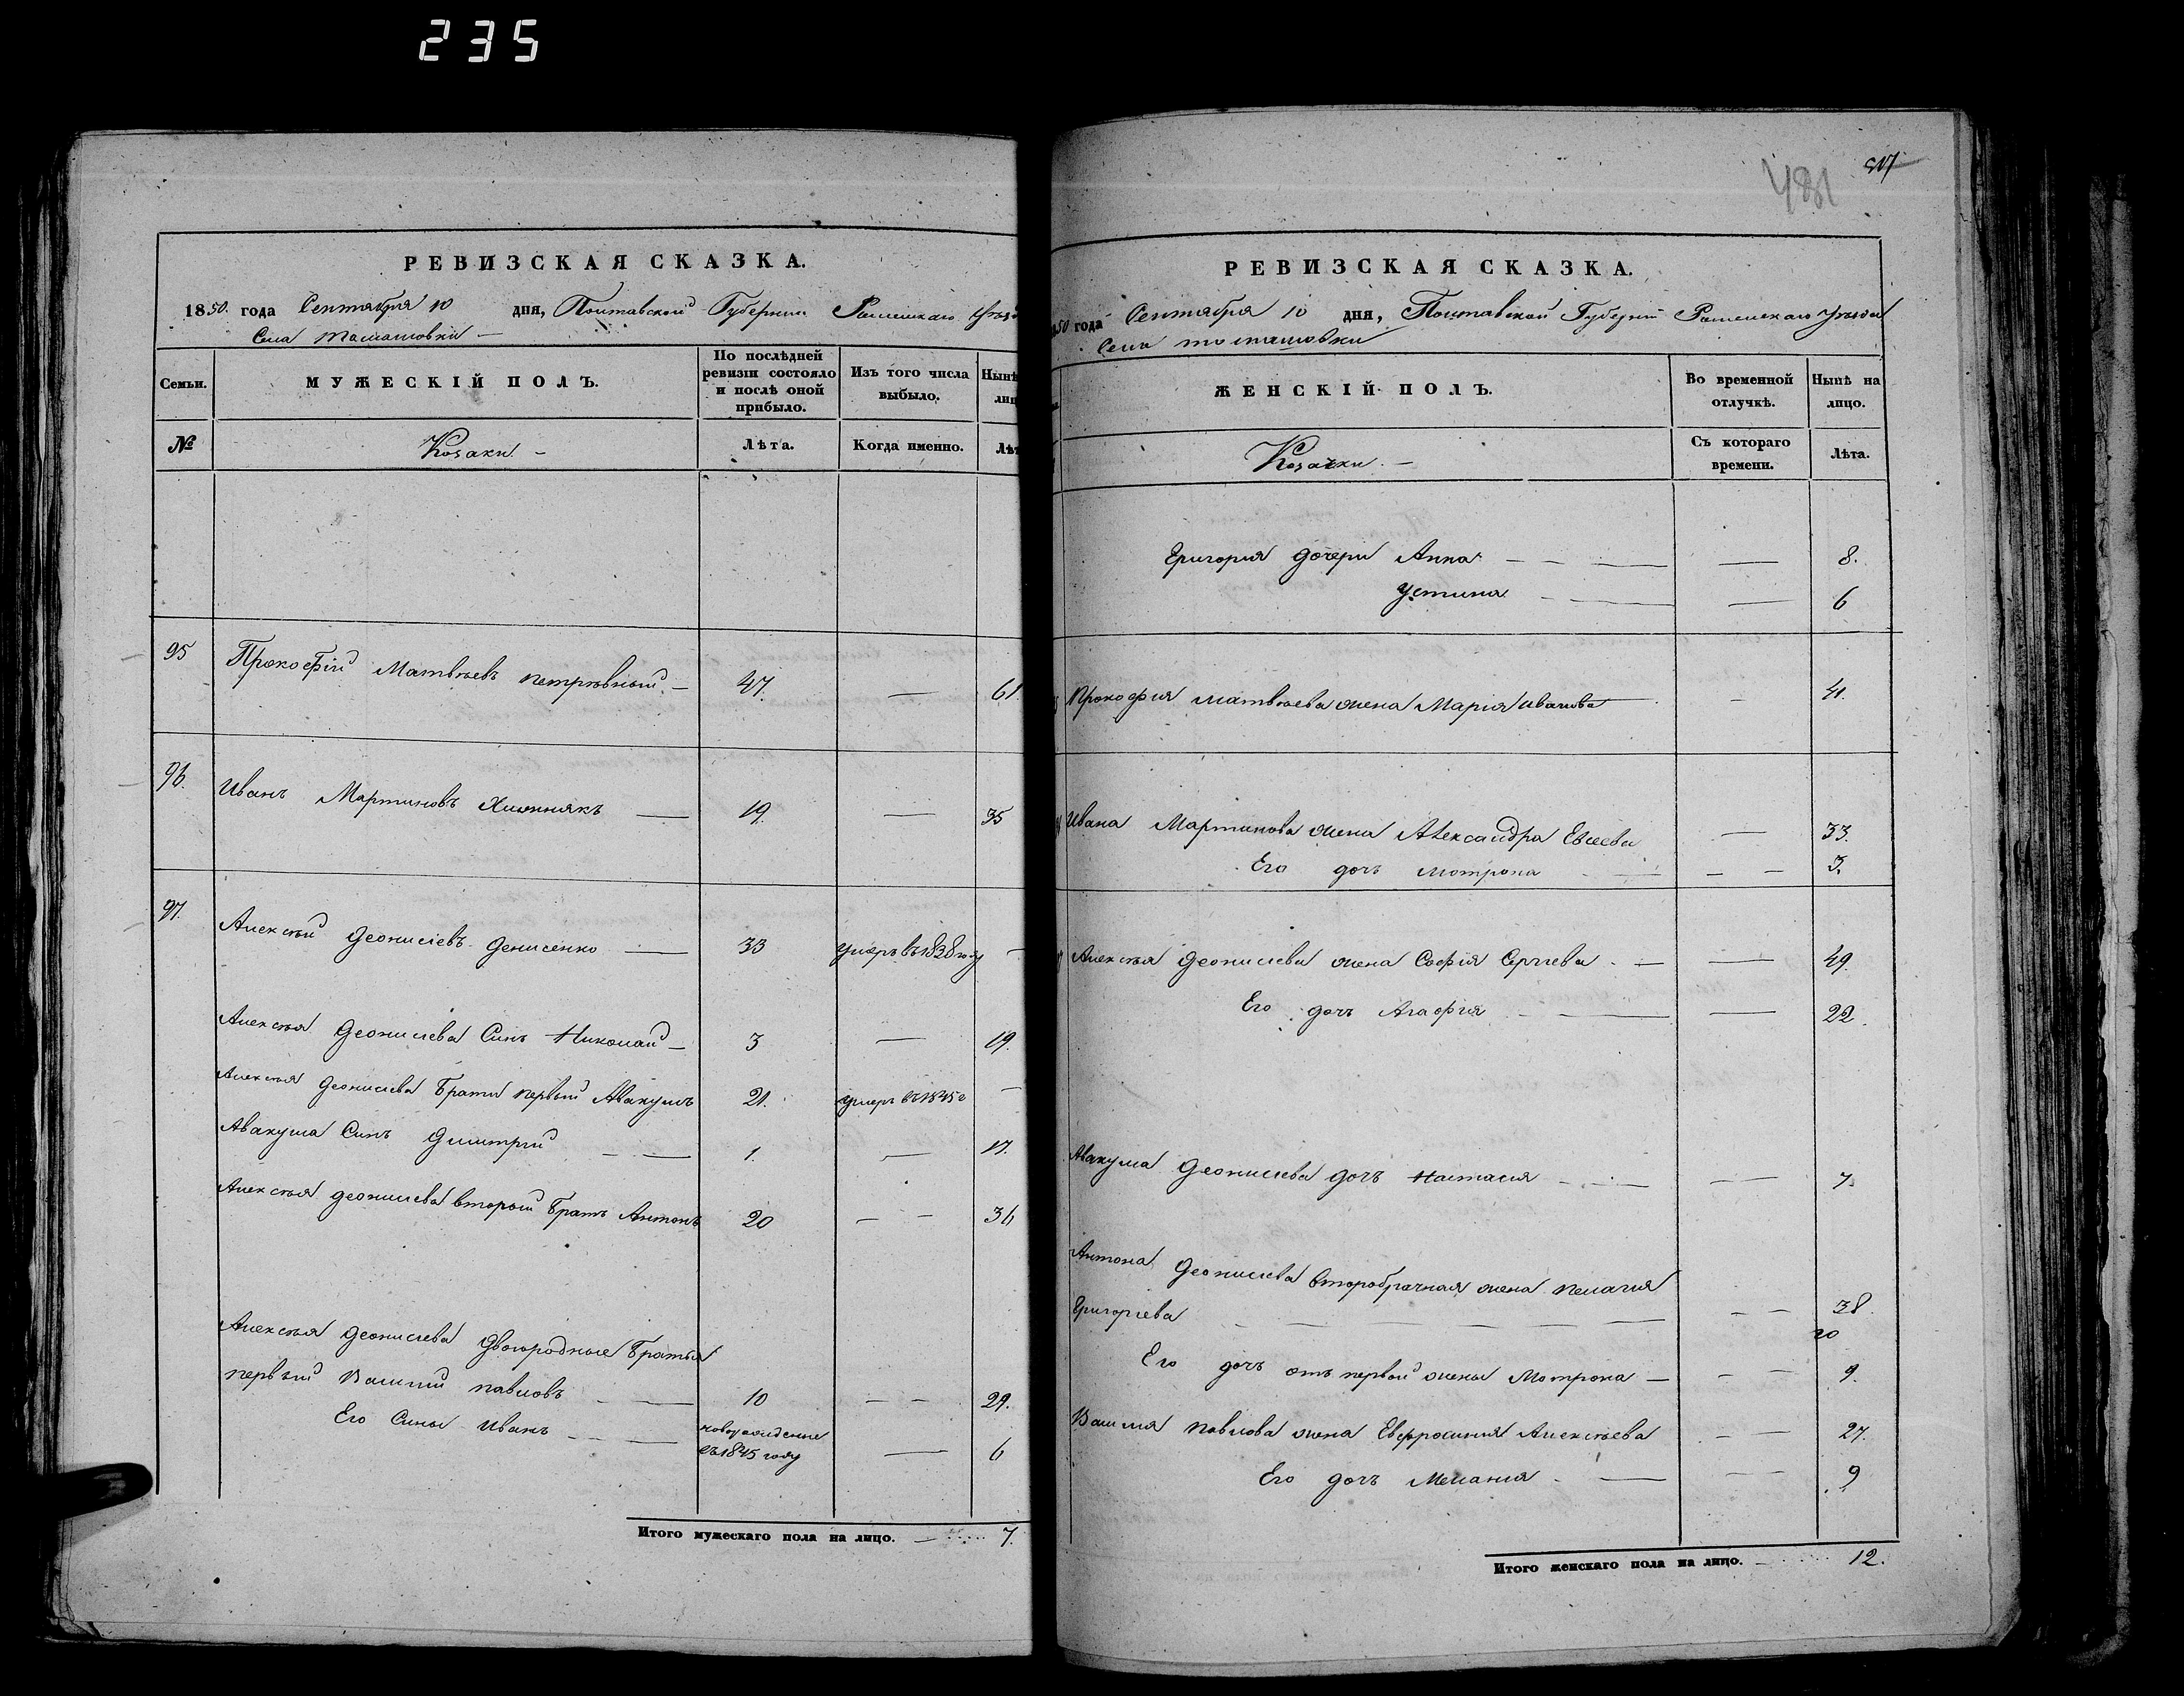 235
РЕВИЗСКАЯ СКАЗКА.
1850. года Сентября 10 дня, Полтавской Губернии Роменскаго Уѣзда
Села Томашовки
Семьи.
МУЖЕСКІЙ ПОЛЪ.
По послѣдней ревизіи состояло и послѣ оной прибыло.
Изъ того числа выбыло.
Нынѣ лиц
№
Козаки
Лѣта.
Когда именно.
Лѣт
95 Прокофій Матвѣевъ 47. — 61.
96. Иванъ Мартиновъ 19. — 35
97. Алексѣй Деонисіевъ Денисенко — 33 умеръ въ 1838 году —
Алексѣя Деонисіева Синъ Николай — 3 — 19.
Алексѣя Деонисіева Брати первый Авакумъ 21. умеръ въ 1845 г —
Авакума Синъ Димитрій — 1. — 17.
Алексѣя Деонисіева второй Братъ Антонъ 20 — — 36
Алексѣя Деонисіева Двоюродные Братья
первый Василий Павловъ — 10 — — 29.
Его Сины Иванъ — — новорожденые въ 1845 году — 6
Итого мужескаго пола на лицо. — 7.
481
517
РЕВИЗСКАЯ СКАЗКА.
50 года Сентября 10 дня, Полтавской Губерніи Роменскаго Уѣзда
Села Томашовки
ЖЕНСКІЙ ПОЛЪ.
Во временной отлучкѣ.
Нынѣ на лицо.
Козачки. —
Съ котораго времени.
Лѣта.
Григория дочери Анна — — — — 8.
Устина — — — 6
Прокофия Матвѣева жена Марія Иванова — 41.
Ивана Мартинова жена Александра Евсеева — 33.
Его дочъ Мотрона — — — 3.
Алексѣя Деонисіева жена Софія Сергѣева — — 49.
Его дочъ Агафія — — — 22.
Авакума Деонисіева дочъ Настасия — — — 7.
Антона Деонисіева второбрачная жена Пелагия
Григоріева — — — — — — 38.
20
Его дочъ отъ первой жены Мотрона — — — 9.
Василия Павлова жена Евфросиния Алексѣева — — 27.
Его дочъ Мелания — — — 9
Итого женскаго пола на лицо. — 12.